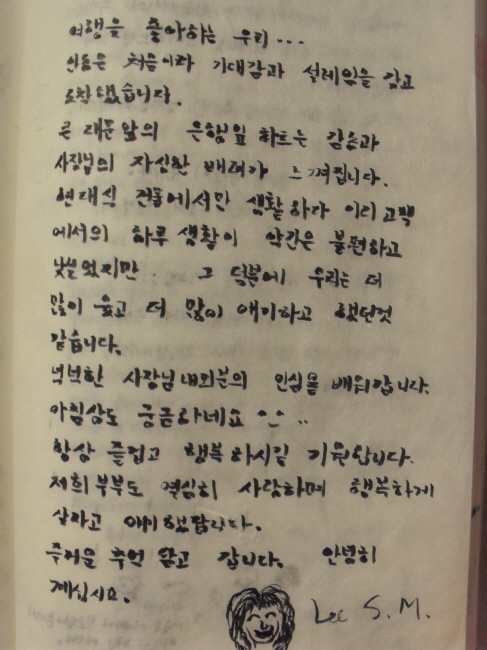 여행을 좋아하는 우리...
안동은 처음이라 기대감과 설레임을 갖고
도착했습니다.
큰 대문앞의 은행잎 하트는 감솜과
사장님의 자상한 배려가 느껴집니다.
현대식 건물에서만 생활하다 이리 고택
에서의 하루 생활이 약간은 불편하고
낯설었지만. 그 덕분에 우리는 더
많이 웃고 더 많이 얘기하고 했던것
같습니다.
넉넉한 사장님내외분의 인심을 배워갑니다.
아침상도 궁금하네요 ^^ ..
항상 즐겁고 행복하시길 기원합니다.
저희부부도 열심히 사랑하며 행복하게
살라고 얘기했답니다.
즐거운 추억 담고 갑니다. 안녕히
계십시요.
Lee S.M.